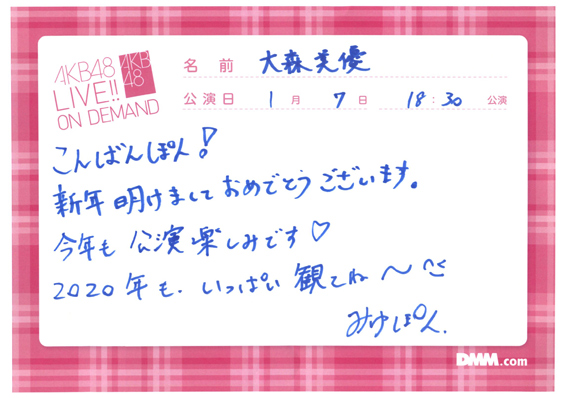 AKB48
LIVE!!
ON DEMAND
AKB
48
名前 大森美優
公演日 1月 7日 18:30 公演
こんばんぽん!
新年明けましておめでとうございます。
今年も公演楽しみです♡
2020年も、いっぱい観てね〜^^
みゆぽん.
DMM.com